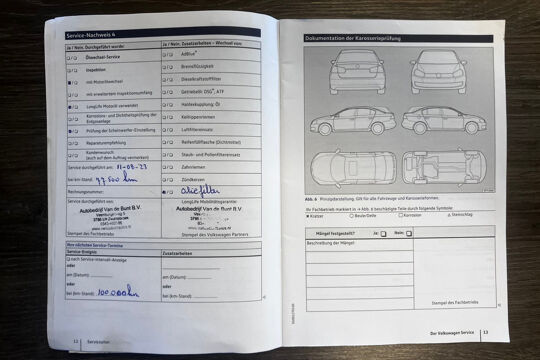 Service-Nachweis 4
Ja / Nein, Durchgeführt wurde:
Ölwechsel-Service
Inspektion
mit Motorölwechsel
mit erweitertem Inspektionsumfang
LongLife Motoröl verwendet
Korrosions- und Dichtheitsprüfung der Erdgasanlage
Prüfung der Scheinwerfer-Einstellung
Reparaturempfehlung
Kundenwunsch
(auch auf dem Auftrag vermerken)
Service durchgeführt am: 11-09-23
bei km-Stand: 77.500 km
Rechnungsnummer:
Service durchgeführt von:
Autobedrijf Van de Bunt B.V.
Stempel des Fachbetriebs
Ja / Nein, Zusatzarbeiten – Wechsel von:
AdBlue®
Bremsflüssigkeit
Dieselkraftstofffilter
Getriebeöl: DSG®, ATF
Haldexkupplung: Öl
Keilrippenriemen
Luftfiltereinsatz
Reifenfüllflasche (Dichtmittel)
Staub- und Pollenfiltereinsatz
Zahnriemen
Zündkerzen
oliefilter
LongLife Mobilitätsgarantie:
Autobedrijf Van de Bunt B.V.
Stempel des Volkswagen Partners
Ihre nächsten Service-Termine
Service-Ereignis
Zusatzarbeiten
nach Service-Intervall-Anzeige
oder
am (Datum):
am (Datum):
oder
oder
bei (km-Stand): 100.000 km
bei (km-Stand):
12
Serviceplan
Dokumentation der Karosserieprüfung
Abb. 6 Prinzipdarstellung. Gilt für alle Fahrzeuge und Karosserieformen.
Ihr Fachbetrieb markiert in → Abb. 6 beschädigte Teile durch folgende Symbole:
Kratzer
Beule/Delle
Korrosion
Steinschlag
Mängel festgestellt?
Ja:
Nein:
Beschreibung der Mängel:
Stempel des Fachbetriebs
Der Volkswagen Service
13